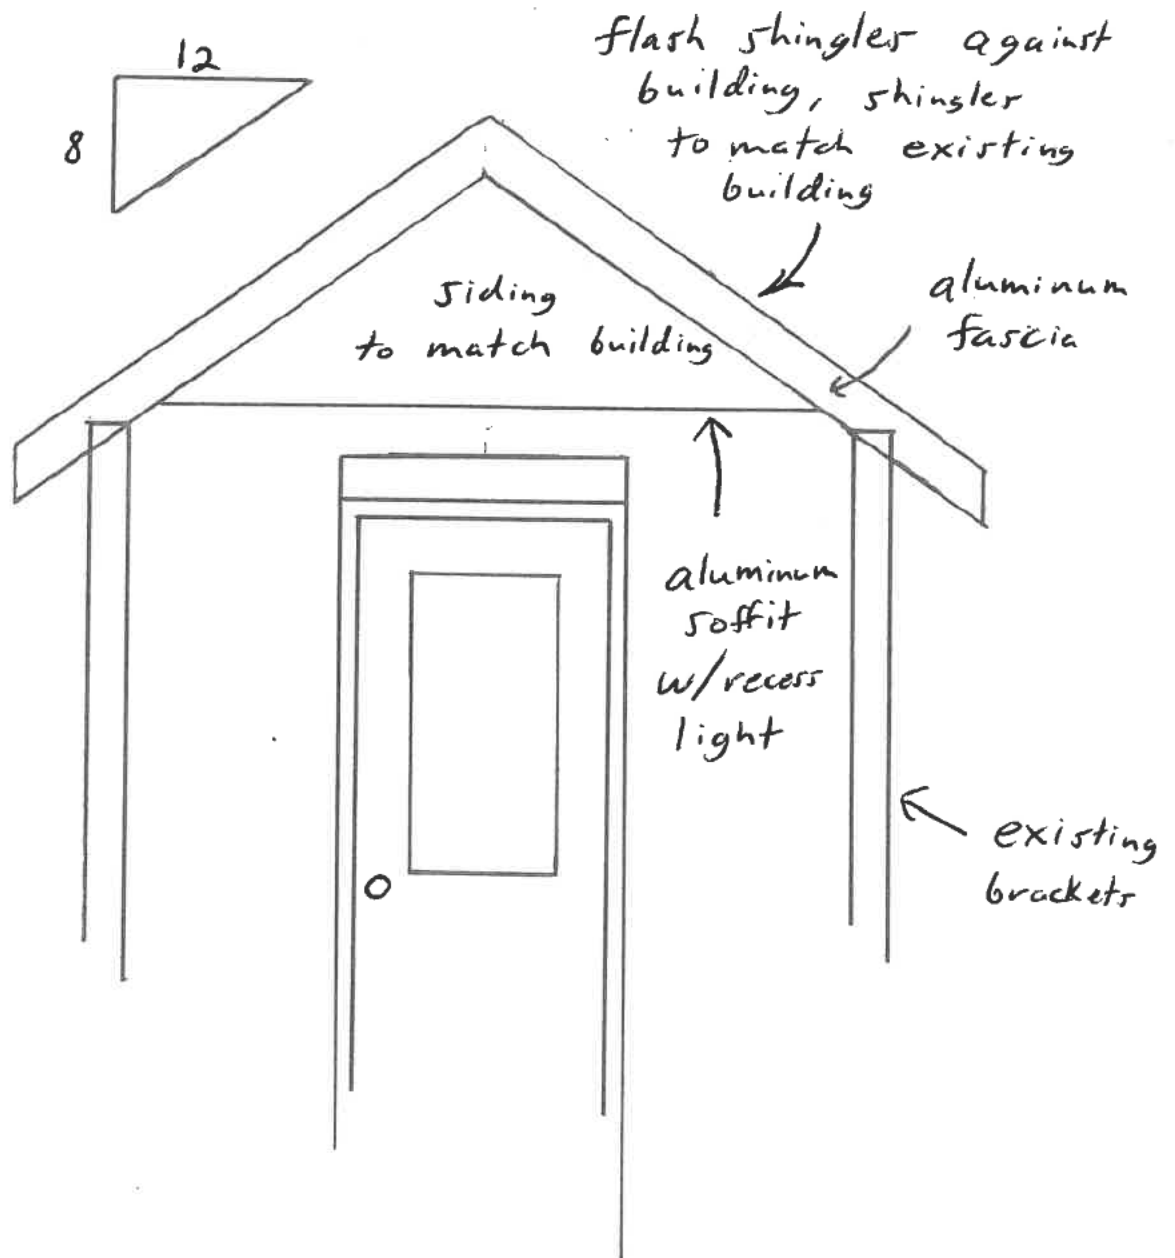 12
8
flash shingles against
building, shingles
to match existing
building
siding
to match building
aluminum
fascia
aluminum
soffit
w/recess
light
existing
brackets